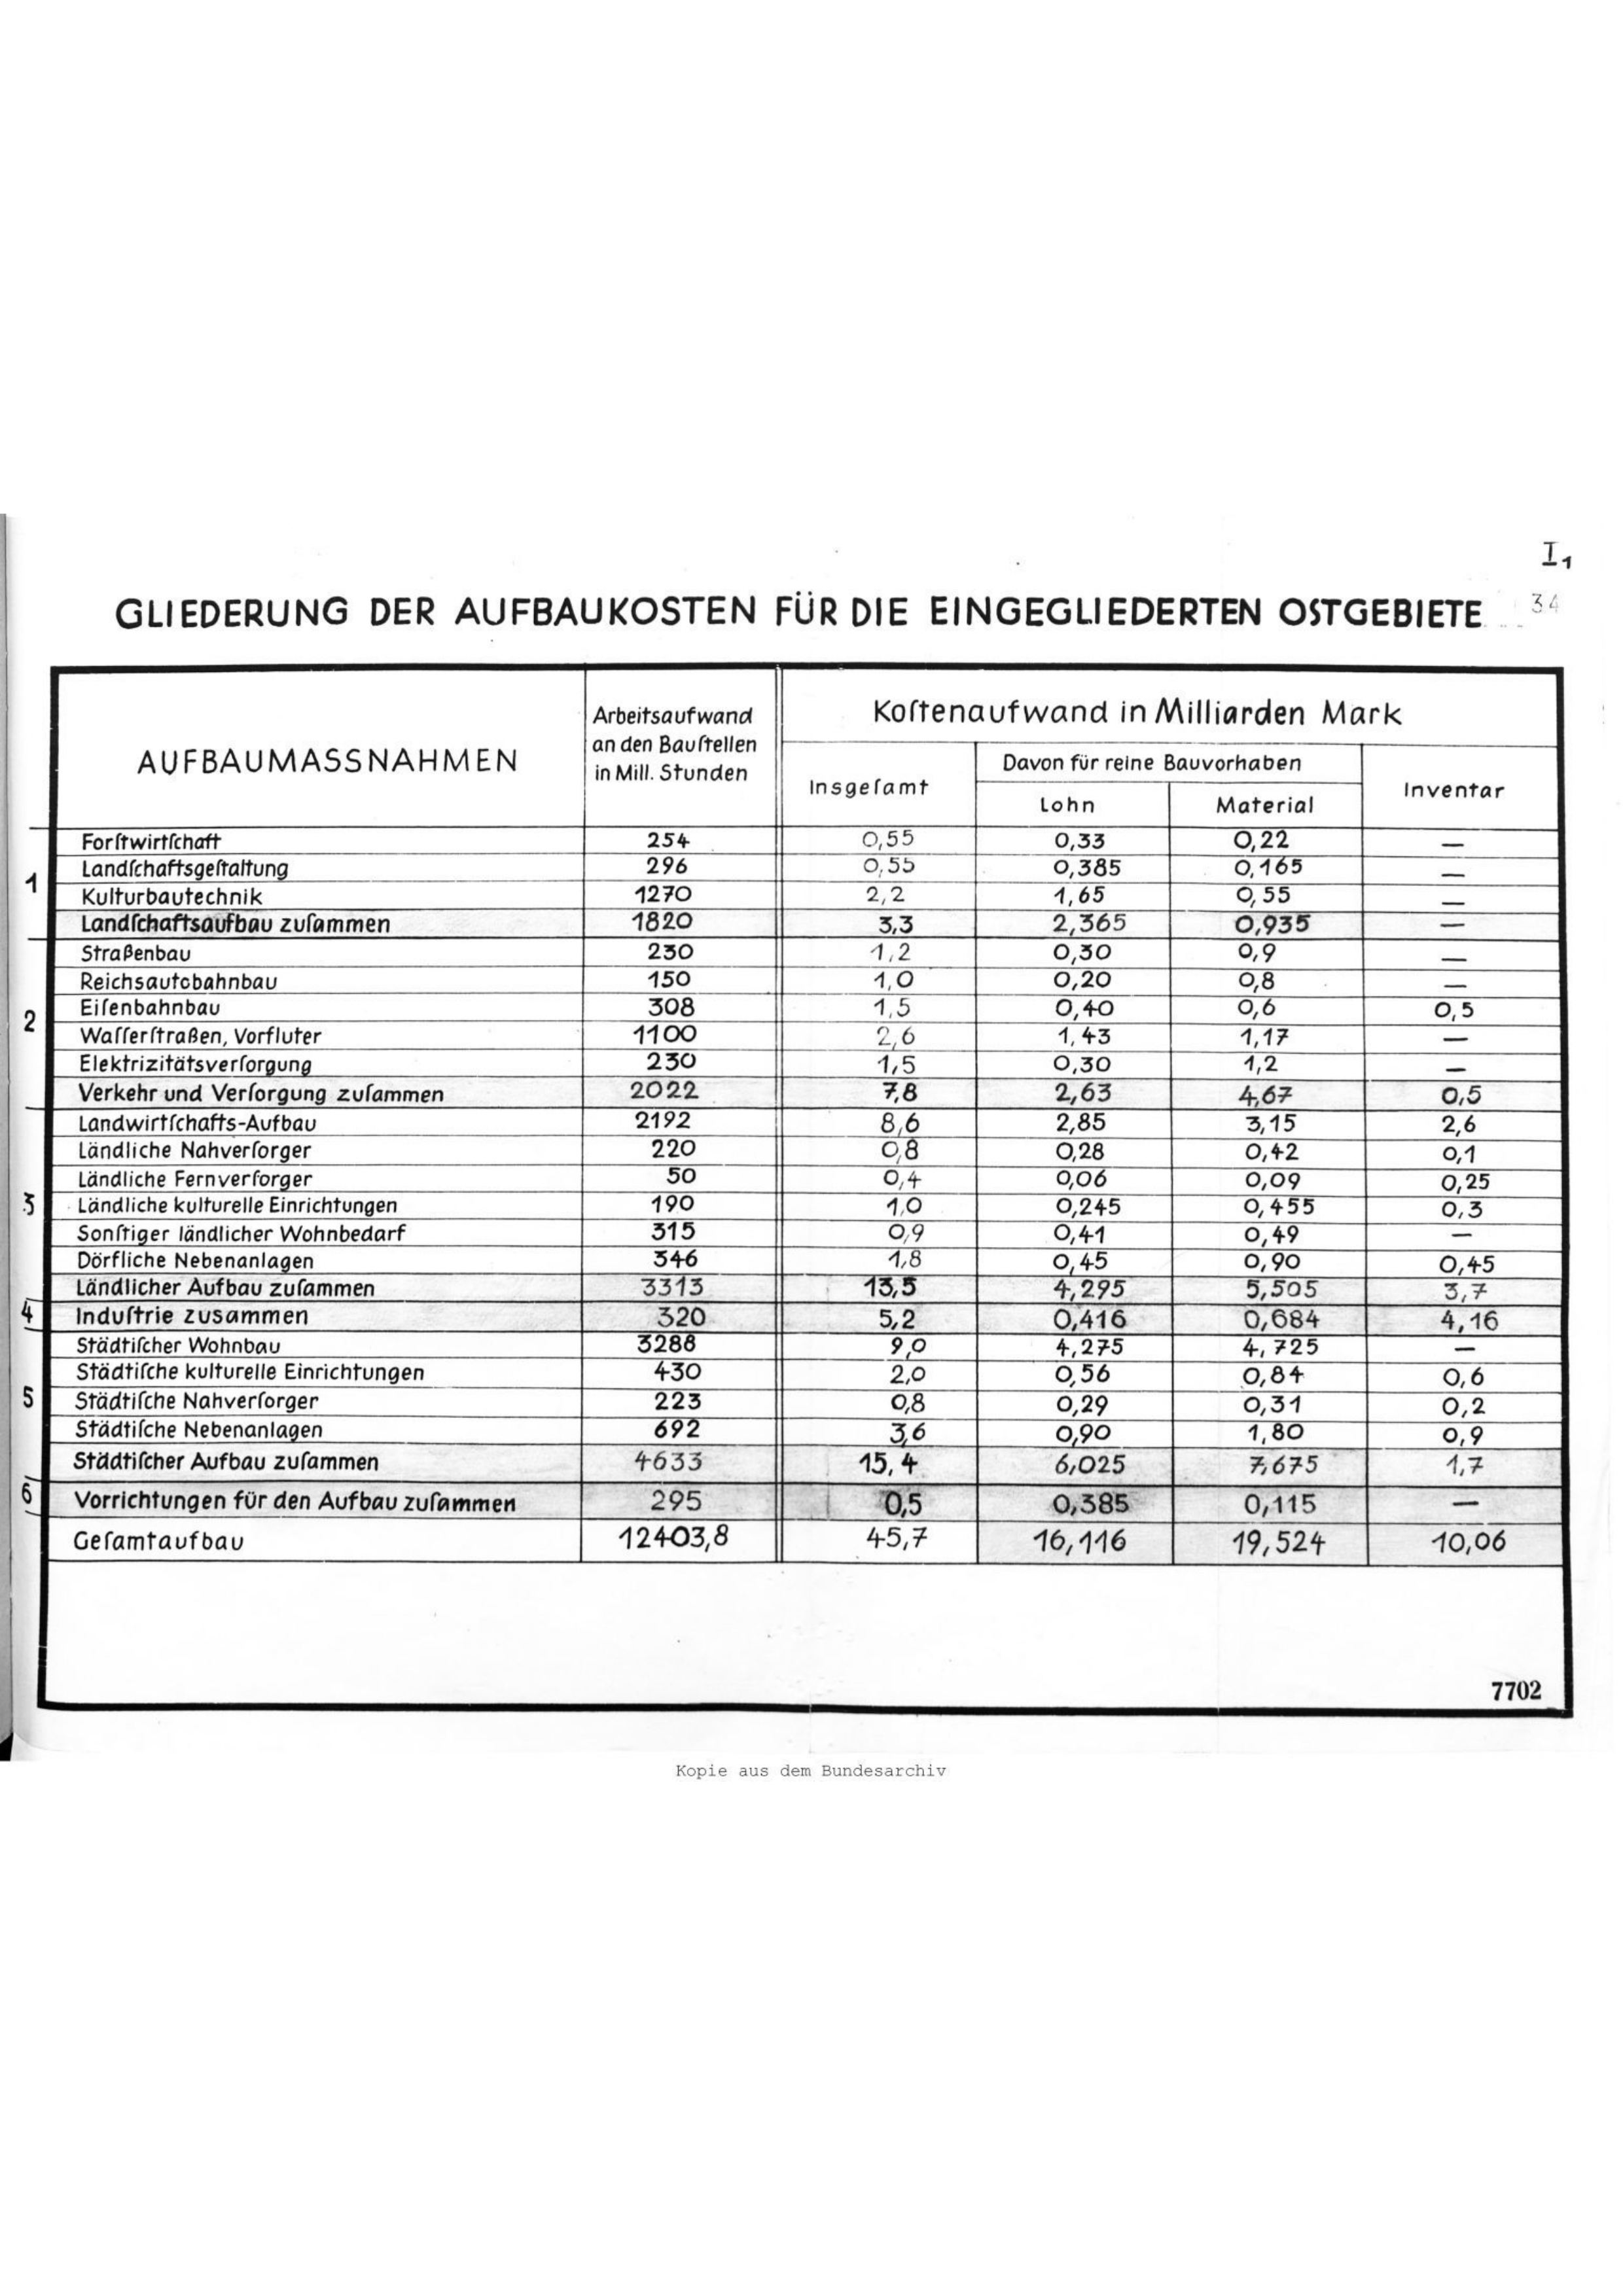 I₁
GLIEDERUNG DER AUFBAUKOSTEN FÜR DIE EINGEGLIEDERTEN OSTGEBIETE 34
AUFBAUMASSNAHMEN
Arbeitsaufwand
an den Bauſtellen
in Mill. Stunden
Koſtenaufwand in Milliarden Mark
Insgeſamt
Davon für reine Bauvorhaben
Lohn
Material
Inventar
1
Forſtwirtſchaft 254 0,55 0,33 0,22 —
Landſchaftsgeſtaltung 296 0,55 0,385 0,165 —
Kulturbautechnik 1270 2,2 1,65 0,55 —
Landſchaftsaufbau zuſammen 1820 3,3 2,365 0,935 —
2
Straßenbau 230 1,2 0,30 0,9 —
Reichsautobahnbau 150 1,0 0,20 0,8 —
Eiſenbahnbau 308 1,5 0,40 0,6 0,5
Waſſerſtraßen, Vorfluter 1100 2,6 1,43 1,17 —
Elektrizitätsverſorgung 230 1,5 0,30 1,2 —
Verkehr und Verſorgung zuſammen 2022 7,8 2,63 4,67 0,5
3
Landwirtſchafts-Aufbau 2192 8,6 2,85 3,15 2,6
Ländliche Nahverſorger 220 0,8 0,28 0,42 0,1
Ländliche Fernverſorger 50 0,4 0,06 0,09 0,25
Ländliche kulturelle Einrichtungen 190 1,0 0,245 0,455 0,3
Sonſtiger ländlicher Wohnbedarf 315 0,9 0,41 0,49 —
Dörfliche Nebenanlagen 346 1,8 0,45 0,90 0,45
Ländlicher Aufbau zuſammen 3313 13,5 4,295 5,505 3,7
4
Induſtrie zusammen 320 5,2 0,416 0,684 4,16
5
Städtiſcher Wohnbau 3288 9,0 4,275 4,725 —
Städtiſche kulturelle Einrichtungen 430 2,0 0,56 0,84 0,6
Städtiſche Nahverſorger 223 0,8 0,29 0,31 0,2
Städtiſche Nebenanlagen 692 3,6 0,90 1,80 0,9
Städtiſcher Aufbau zuſammen 4633 15,4 6,025 7,675 1,7
6
Vorrichtungen für den Aufbau zuſammen 295 0,5 0,385 0,115 —
Geſamtaufbau 12403,8 45,7 16,116 19,524 10,06
7702
Kopie aus dem Bundesarchiv